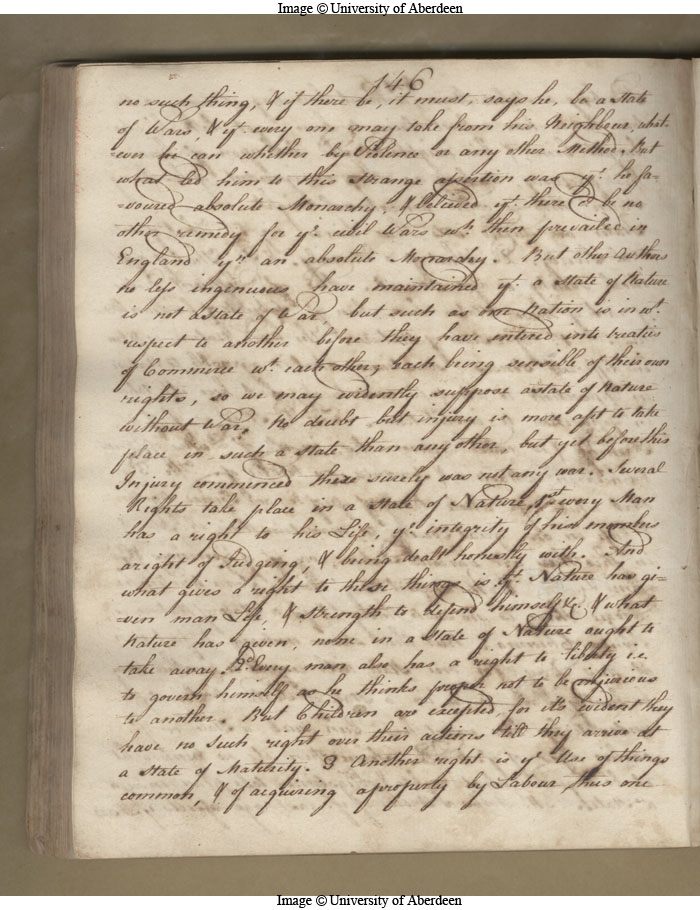 Image © University of Aberdeen
146
no such thing, & if there be, it must, says he, be a state
of War, & yt. every one may take from his Neighbour what-
ever he can whether by Violence or any other Method. But
what led him to this strange assertion was yt. he fa-
-voured absolute Monarchy, & believed yt. there cd. be no
other remedy for ye. civil Wars wh. then prevailed in
England yn. an absolute Monarchy. But other authors
no less ingenuous have maintained yt. a state of Nature
is not a State of War but such as one Nation is in wt.
respect to another before they have entered into treaties
of Commerce wt. each other, each being sensible of their own
rights, so we may evidently suppose a state of Nature
without War. No doubt but injury is more apt to take
place in such a state than any other, but yet before this
Injury commenced there surely was not any war. Several
Rights take place in a State of Nature, 1st. every Man
has a right to his Life, ye. integrity of his members
a right of Judging, & being dealt honestly with. And
what gives a right to these things is yt. Nature has gi=
=ven man Life, & strength to defend himself &c. & what
Nature has given, none in a state of Nature ought to
take away. 2d. Every man also has a right to liberty i.e.
to govern himself as he thinks proper not to be injurious
to another. But Children are excepted, for its evident they
have no such right over their actions till they arrive at
a State of Maturity. 3 Another right is ye. Use of things
common, & of acquiring a property by Labour thus one
Image © University of Aberdeen